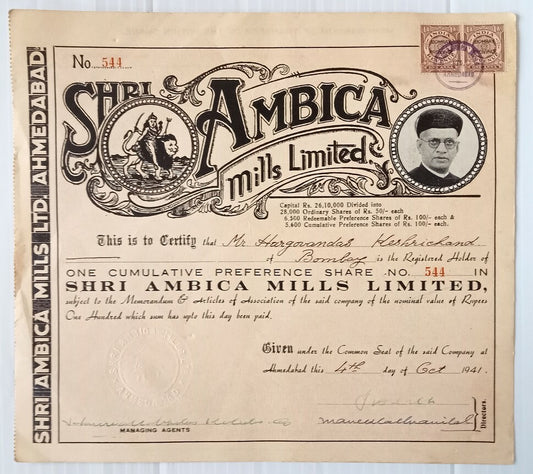 SHRI AMBICA MILLS LTD. AHMEDABAD.
No. 544
INDIA
INDIA
SHRI AMBICA
Mills Limited
Capital Rs. 26,10,000 Divided into
28,000 Ordinary Shares of Rs. 50/- each
6,500 Redeemable Preference Shares of Rs. 100/- each &
5,600 Cumulative Preference Shares of Rs. 100/- each.
This is to Certify that Mr. Hargovandas Keshrichand
of Bombay is the Registered Holder of
ONE CUMULATIVE PREFERENCE SHARE NO. 544 IN
SHRI AMBICA MILLS LIMITED,
subject to the Memorandum & Articles of Association of the said company of the nominal value of Rupees
One Hundred which sum has upto this day been paid.
Given under the Common Seal of the said Company at
Ahmedabad this 4th day of Oct 1941.
MANAGING AGENTS
Directors.